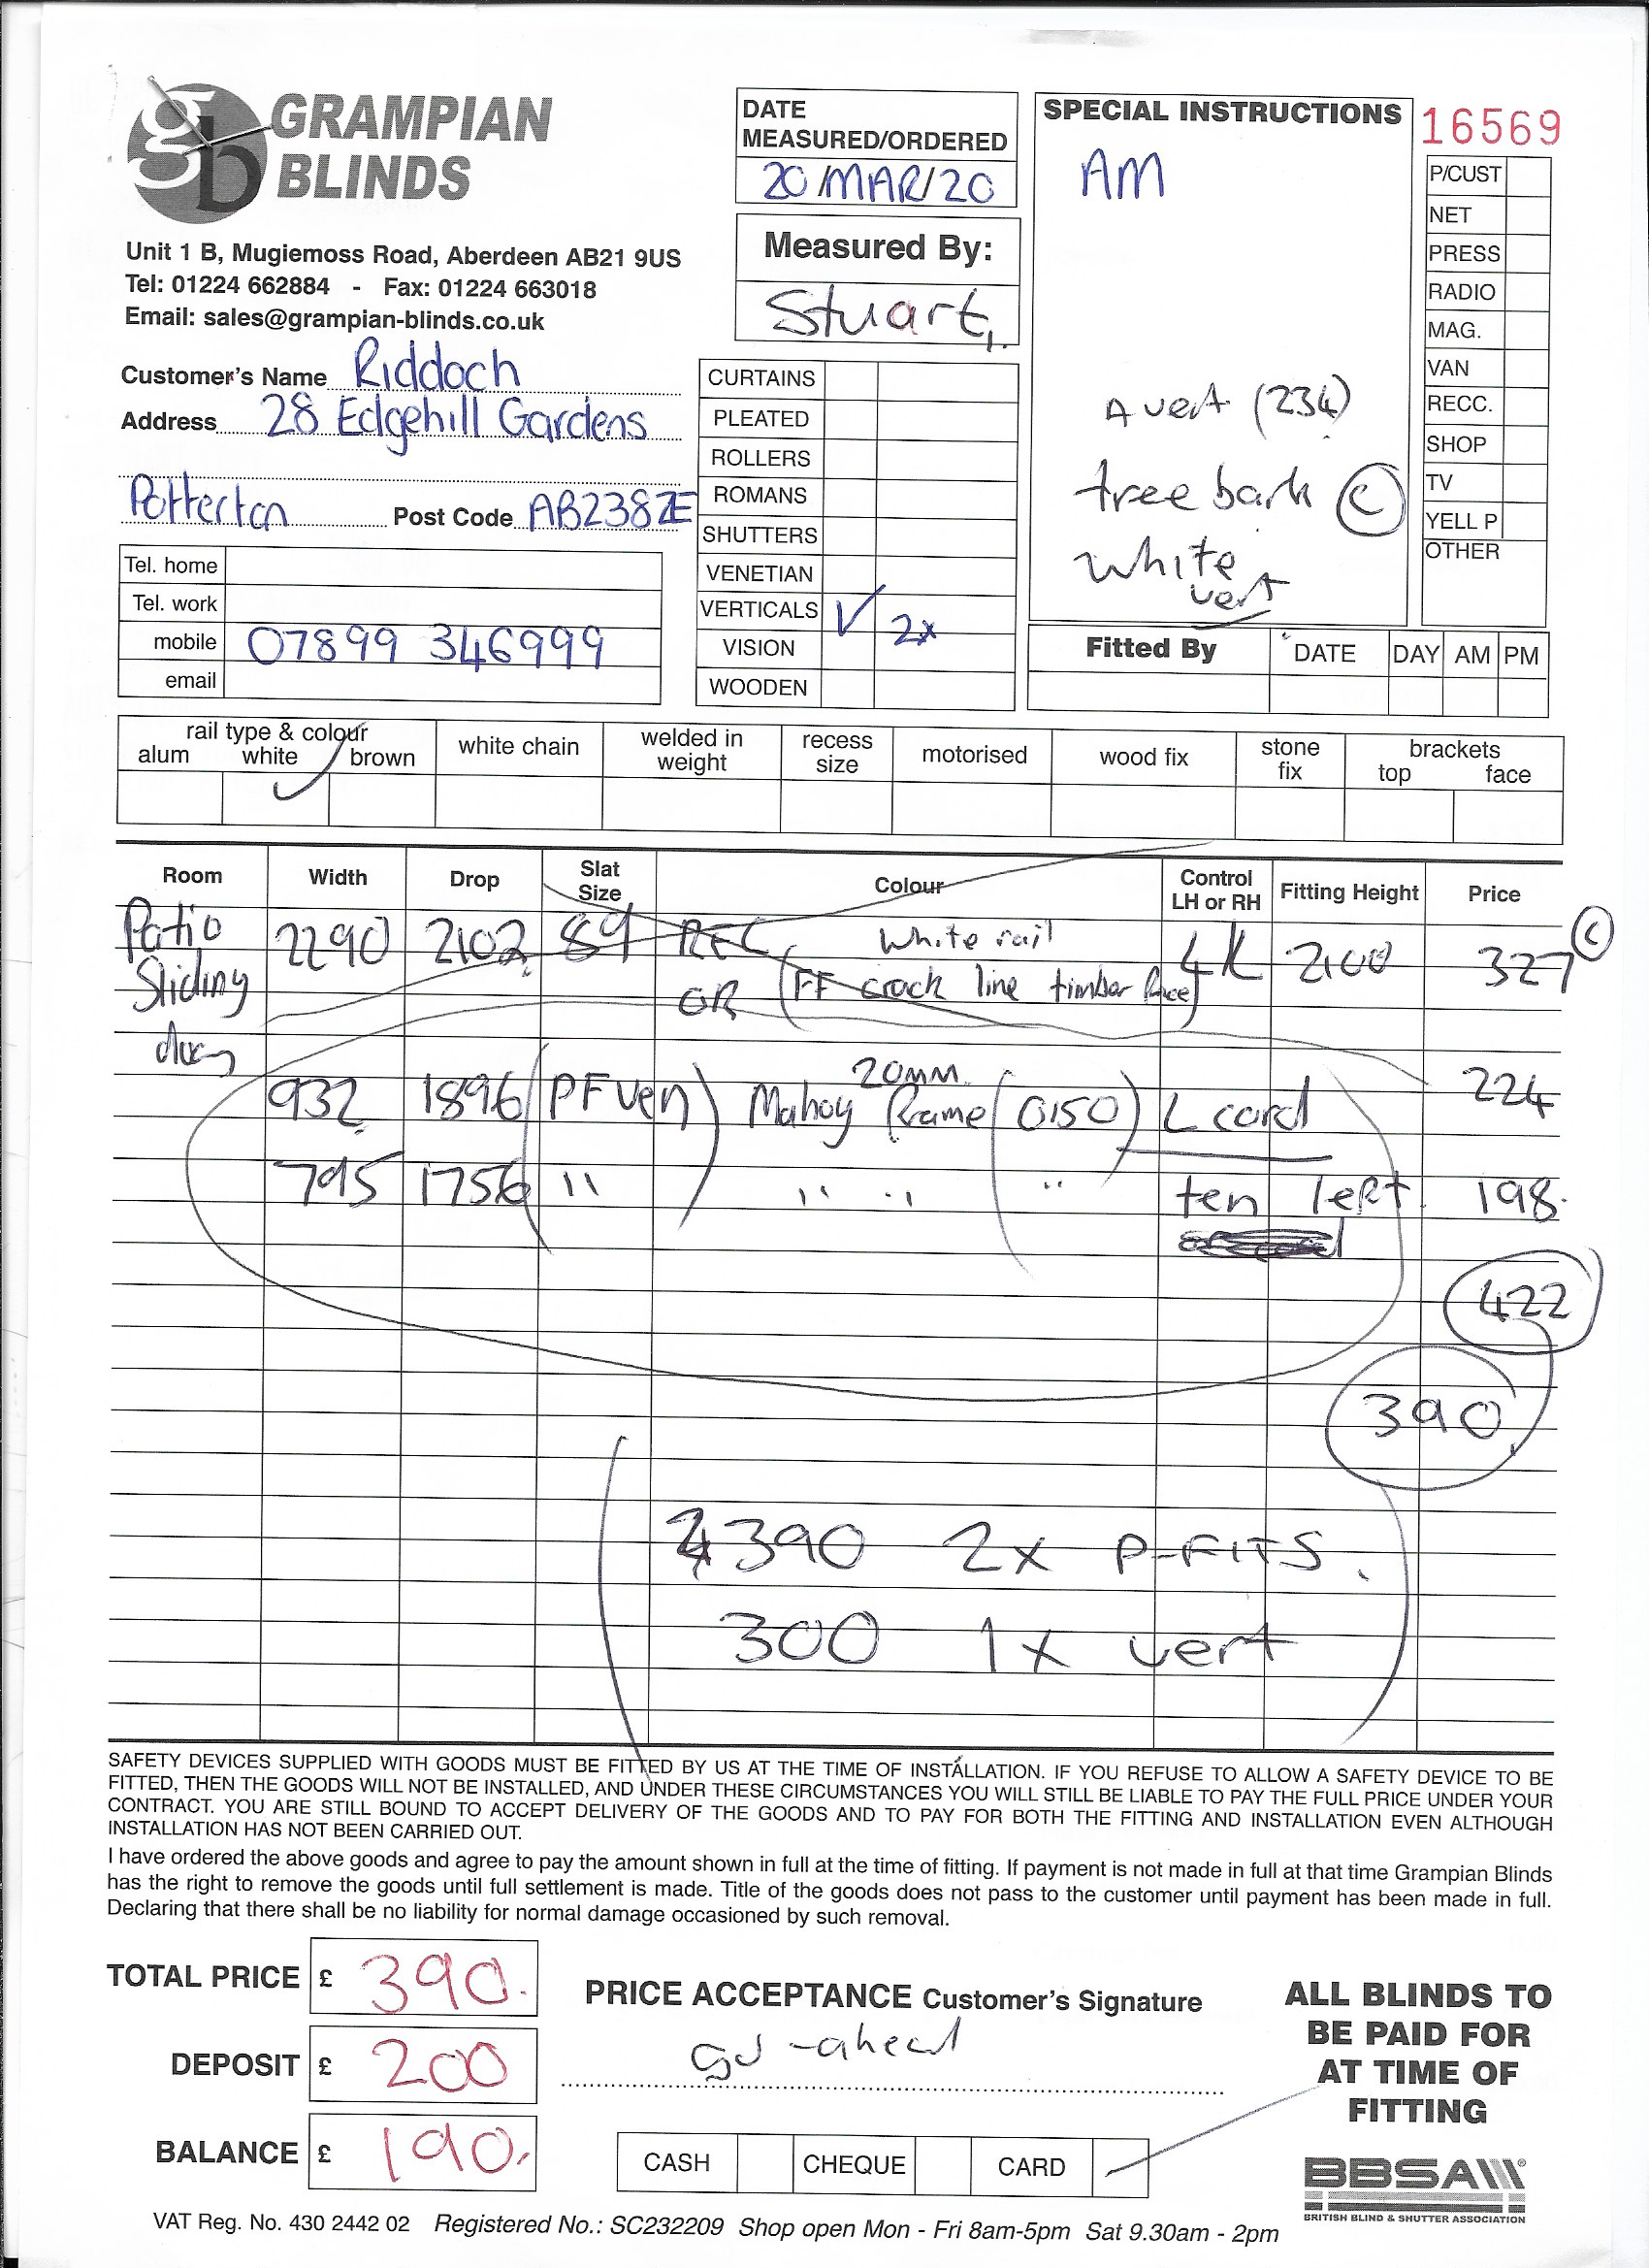 GRAMPIAN
BLINDS
gb
Unit 1 B, Mugiemoss Road, Aberdeen AB21 9US
Tel: 01224 662884 - Fax: 01224 663018
Email: sales@grampian-blinds.co.uk
Customer's Name Riddoch
Address 28 Edgehill Gardens
Potterton Post Code AB238ZE
Tel. home
Tel. work
mobile 07899 346999
email
DATE
MEASURED/ORDERED
20/MAR/20
Measured By:
Stuart
CURTAINS
PLEATED
ROLLERS
ROMANS
SHUTTERS
VENETIAN
VERTICALS ✓ 2x
VISION
WOODEN
SPECIAL INSTRUCTIONS
AM
A vert (234)
tree bark (C)
White
vert
16569
P/CUST
NET
PRESS
RADIO
MAG.
VAN
RECC.
SHOP
TV
YELL P
OTHER
Fitted By DATE DAY AM PM
rail type & colour
alum white ✓ brown
white chain
welded in weight
recess size
motorised
wood fix
stone fix
brackets
top face
Room Width Drop Slat Size Colour Control LH or RH Fitting Height Price
Patio 2290 2102 89 REC White rail 2100 327 (C)
Sliding OR (FF crack line timber face)
932 1896 (PF Ven) 20MM Frame (0150) L cord 224
795 1756 " " " " ten left 198
422
390
390 2x P-FITS.
300 1x vert
SAFETY DEVICES SUPPLIED WITH GOODS MUST BE FITTED BY US AT THE TIME OF INSTALLATION. IF YOU REFUSE TO ALLOW A SAFETY DEVICE TO BE
FITTED, THEN THE GOODS WILL NOT BE INSTALLED, AND UNDER THESE CIRCUMSTANCES YOU WILL STILL BE LIABLE TO PAY THE FULL PRICE UNDER YOUR
CONTRACT. YOU ARE STILL BOUND TO ACCEPT DELIVERY OF THE GOODS AND TO PAY FOR BOTH THE FITTING AND INSTALLATION EVEN ALTHOUGH
INSTALLATION HAS NOT BEEN CARRIED OUT.
I have ordered the above goods and agree to pay the amount shown in full at the time of fitting. If payment is not made in full at that time Grampian Blinds
has the right to remove the goods until full settlement is made. Title of the goods does not pass to the customer until payment has been made in full.
Declaring that there shall be no liability for normal damage occasioned by such removal.
TOTAL PRICE £ 390.
DEPOSIT £ 200
BALANCE £ 190.
PRICE ACCEPTANCE Customer's Signature
go-ahead
CASH CHEQUE CARD
ALL BLINDS TO
BE PAID FOR
AT TIME OF
FITTING
BBSA
BRITISH BLIND & SHUTTER ASSOCIATION
VAT Reg. No. 430 2442 02 Registered No.: SC232209 Shop open Mon - Fri 8am-5pm Sat 9.30am - 2pm